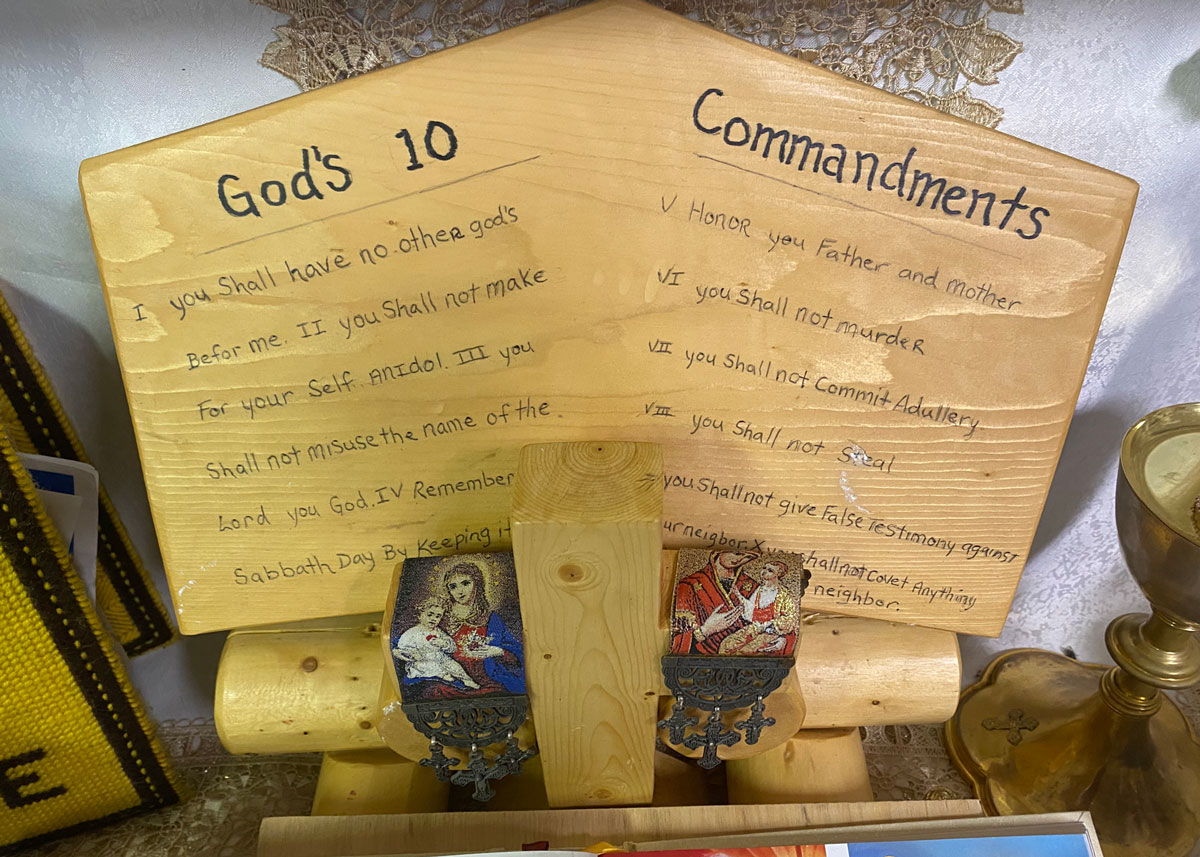 God's 10
I you Shall have no other god's
Befor me. II you Shall not make
For your Self ANIdol. III you
Shall not misuse the name of the.
Lord you God. IV Remember
Sabbath Day By Keeping it
Commandments
V HonoR you Father and mother
VI you Shall not murdeR
VII you Shall not Commit Adullery.
VIII you Shall not Steal
you Shall not give False Testimony against
neigbor X shall not Covet Anything
neighbor.
E